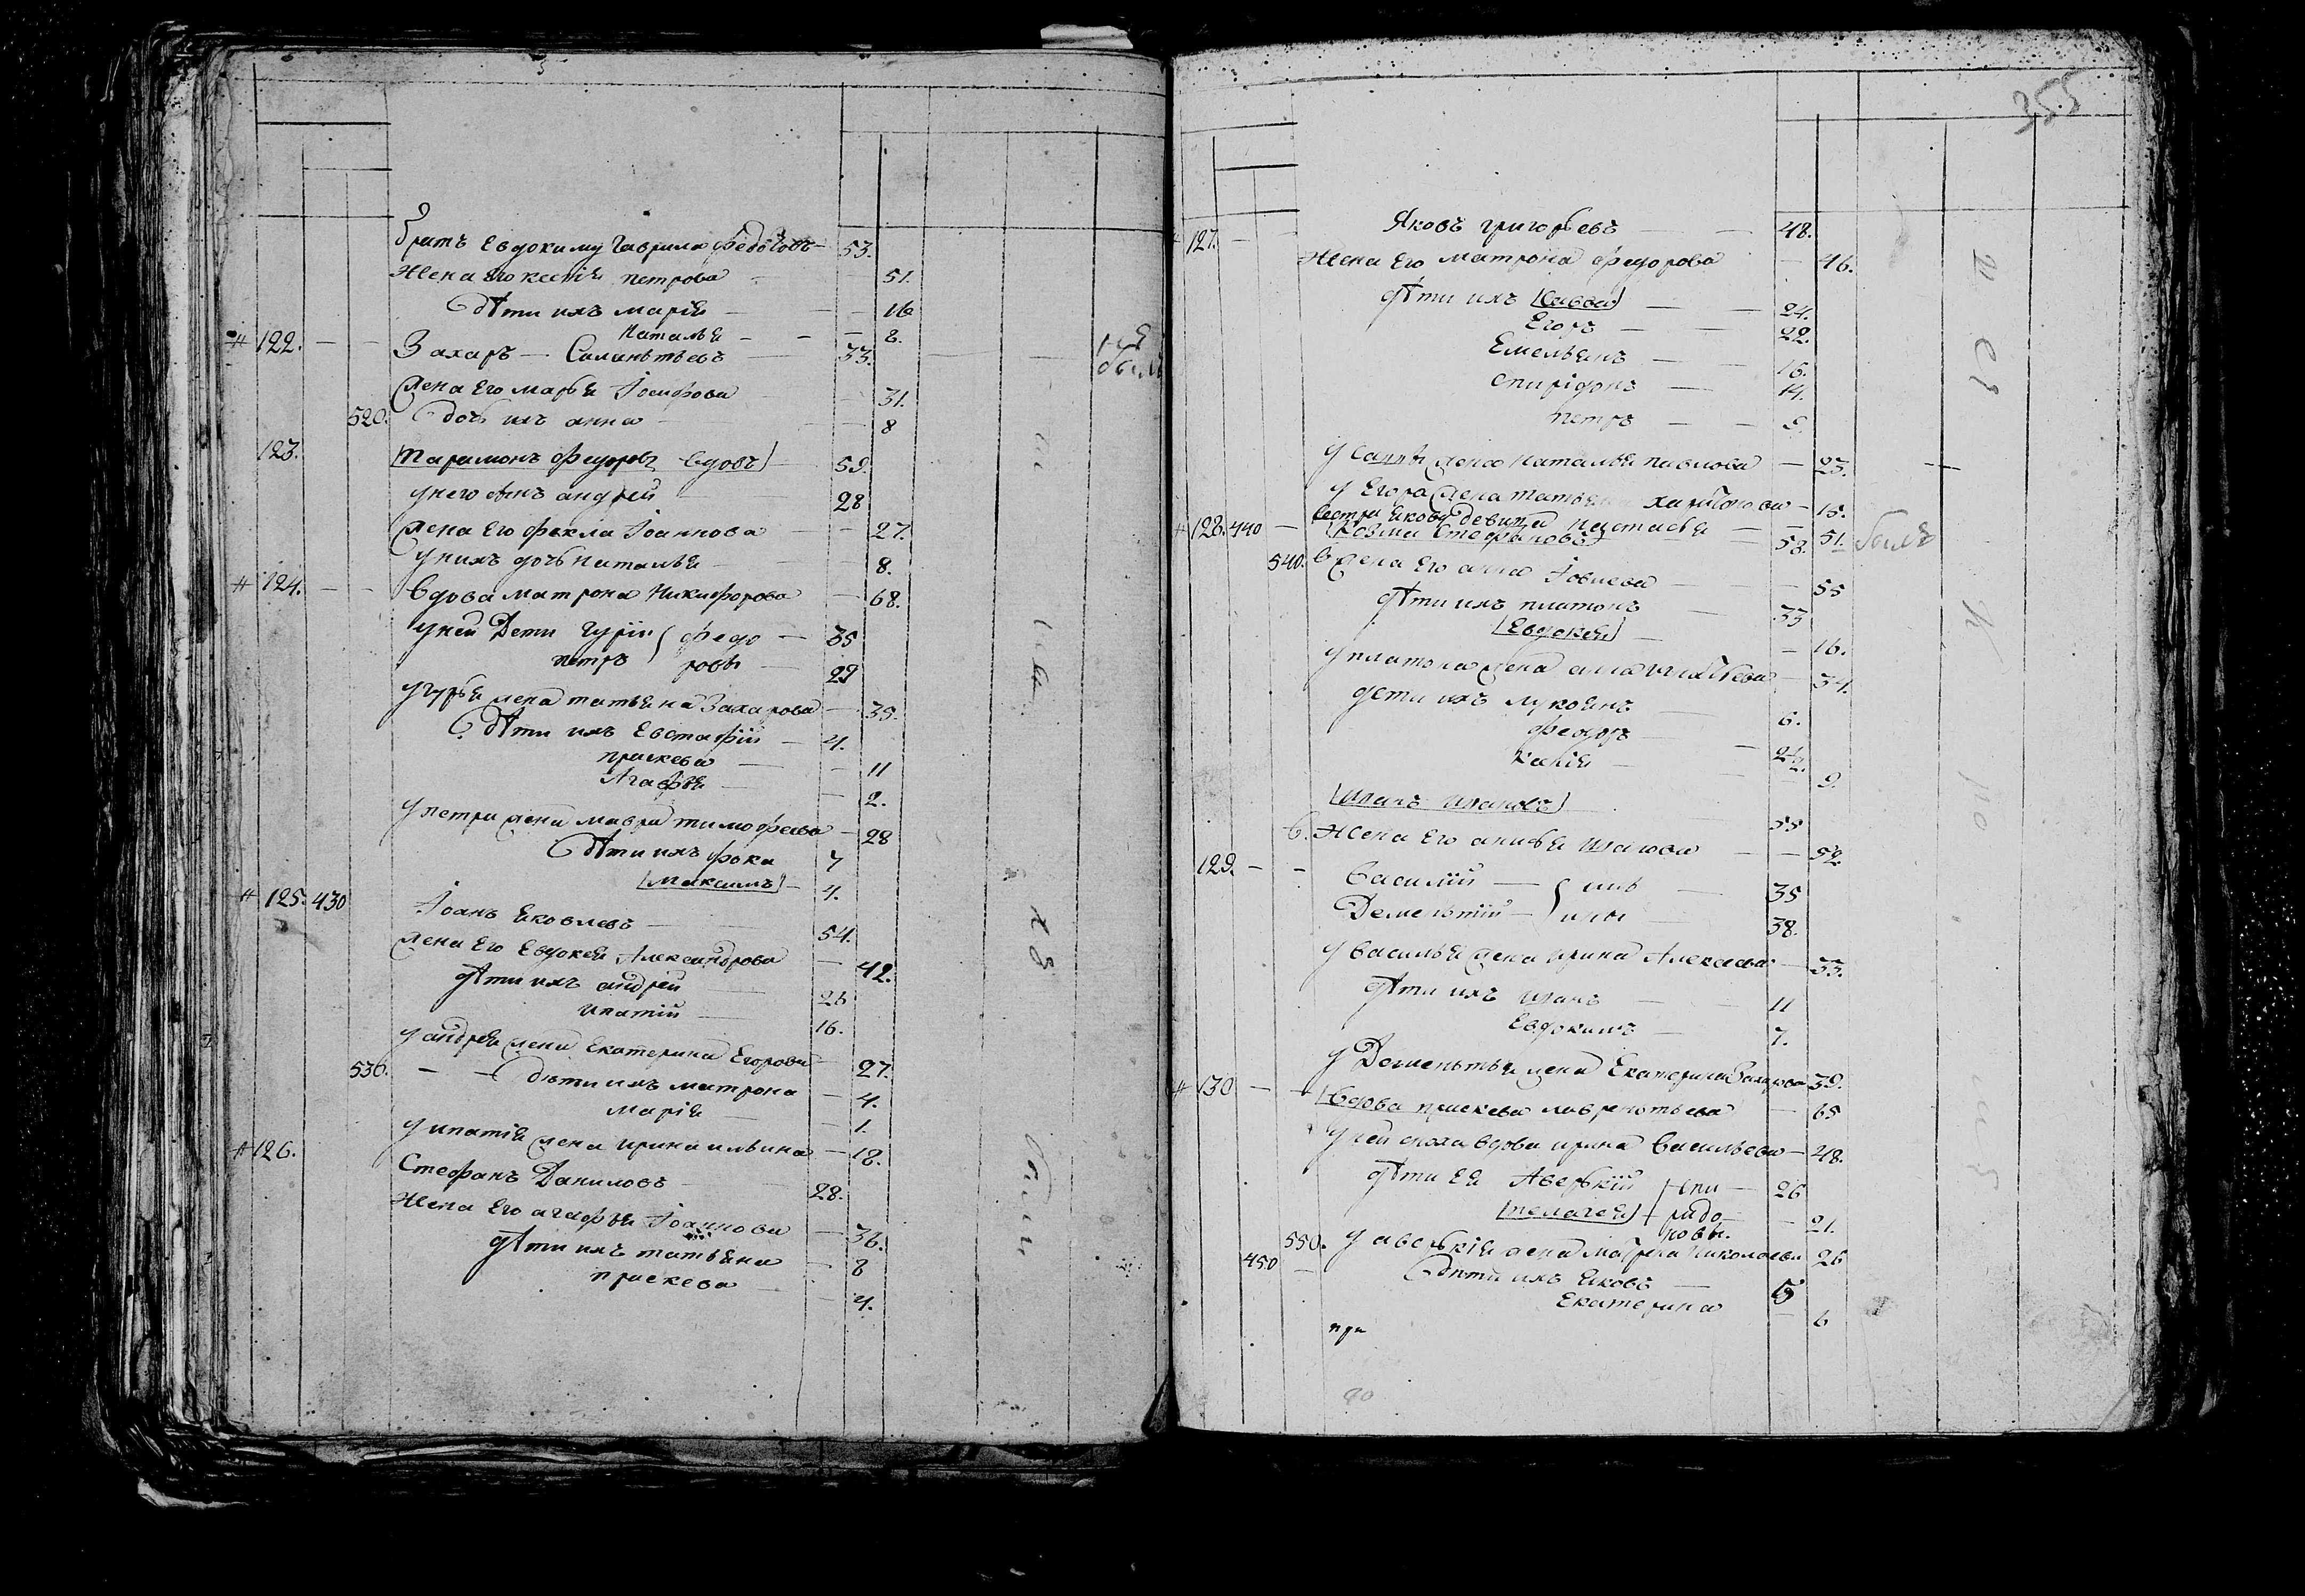 братъ Евдокиму Гаврила Федотовъ — 53.
жена его ксенiя петрова — 51.
Дѣти ихъ марiя — 16
наталья — 8.
# 122. — — Захаръ — Силиньтьевъ — 33.
жена Его марья Iосифова — 31.
520. дочь ихъ анна — 8
123. Парамонъ Федоровъ вдовъ — 59.
у него сынъ андрей 28
жена Его фекла Iоаннова — 27.
у нихъ дочь наталья — 8.
# 124. — — вдова матрона Никифорова — 68.
у ней Дети Гурiй федо — 35
петръ ровы — 29
у гурья жена татьяна Захарова — 39.
Дѣти ихъ Евстафiй — 4.
праскева — 11
Агафья — 2.
у петра жена мавра тимофеева — 28
Дѣти ихъ фока 7
Максимъ — 4.
# 125. 430 Iоанъ Яковлевъ 54.
жена Его Евдокея Александрова — 42.
дѣти ихъ андрей 26
ипатiй 16.
у андрея жена Екатерина Егорова — 27.
530. — — дѣти ихъ матрона — 4.
марiя — 1.
у ипатiя жена ирина ильина — 18.
# 126. Стефанъ Даниловъ 28.
жена Его агафья Iоаннова — 36.
дѣти ихъ татьяна — 8
праскева — 4.
355
127. — — Яковъ григорьевъ — 48.
жена Его матрона федорова — 46.
дѣти ихъ Савва — 24.
Егоръ — 22.
Емельянъ — 16.
спирiдонъ — 14.
петръ — 9.
у Саввы жена наталья павлова — 23.
у Егора жена татьяна харитонова — 18.
сестра Якову девица настасья — 51.
# 128. 440 — Козма Стефановъ 58.
540. жена Его анна Iовлева — 55
дѣти ихъ платонъ 33
Евдокея — 16.
у платона жена анна — 34.
дети ихъ лукоянъ 6.
федоръ
ксенiя — 9.
Иванъ Ивановъ 55
жена Его анисья — 52
129. — — василiй — 35
Дементiй — 38.
у василья жена ирина Алексеева — 33.
дѣти ихъ иванъ — 11
Евдокимъ — 7.
у Дементья жена Екатерина Захарова 39.
# 130 — — вдова праскева лаврентьева — 65
у ней сноха вдова ирина васильева — 48.
дѣти ея Аверкiй спи — 26
пелагея ридо — 21.
новы.
550. у аверкiя жена матрена николаева 26
450 — дѣти ихъ Яковъ — 5
Екатерина — 6
при